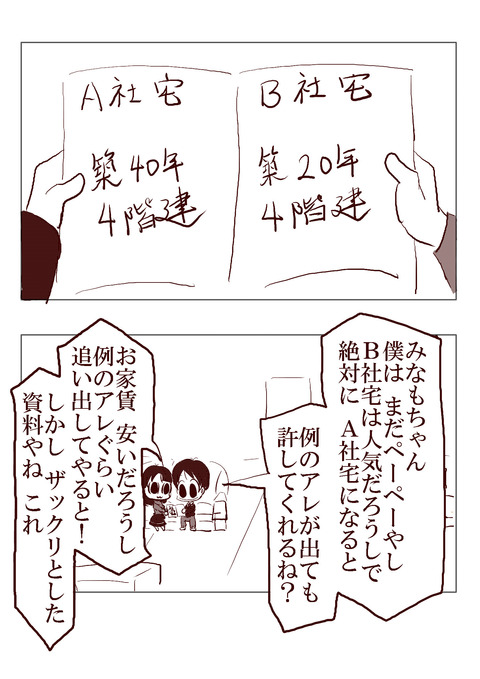 A社宅
築40年
4階建
B社宅
築20年
4階建
みなもちゃん
僕は まだペーペーやし
B社宅は人気だろうしで
絶対に A社宅になると
例のアレが出ても
許してくれるね?
お家賃 安いだろうし
例のアレぐらい
追い出してやると!
しかし ザックリとした
資料やね これ